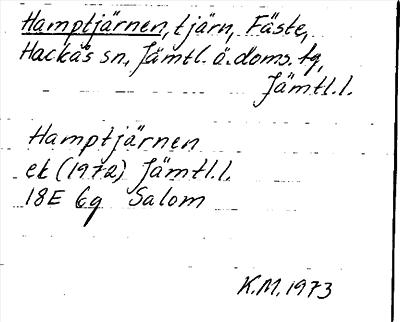 Hamptjärnen, tjärn, Fäste,
Hackås sn, Jämtl. ä. doms. tg,
Jämtl. l.
Hamptjärnen
ek (1972) Jämtl. l.
18E 6g Salom
K.M. 1973